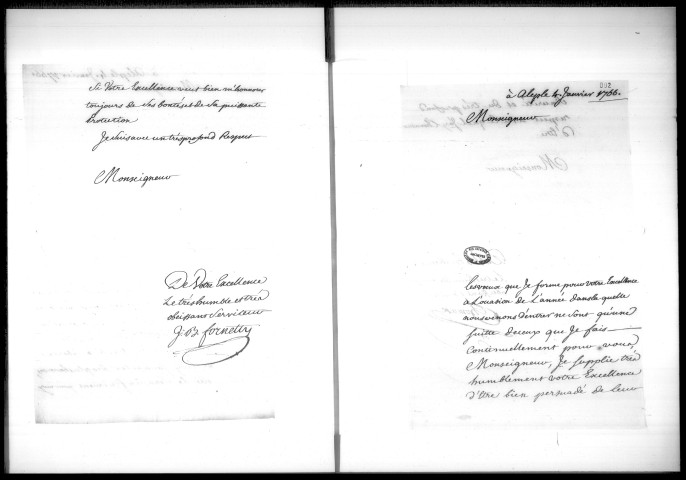 Si Votre Excellence veut bien m'honnorer
toujours de ses bontés et de sa puissante
Protection
Je suis avec un très profond Respect
Monseigneur
De Votre Excellence
Le très humble et très
obéissant Serviteur
J. B. Fornetty
à Aleple 4 Janvier 1786.
Monseigneur
les vœux que Je forme pour Votre Excellence
à L'ocasion de L'année dans la quelle
nous venons d'entrer ne sont qu'une
suitte de ceux que Je fais
continuellement pour vous,
Monseigneur, Je supplie très
humblement Votre Excellence
d'être bien persuadé de leur